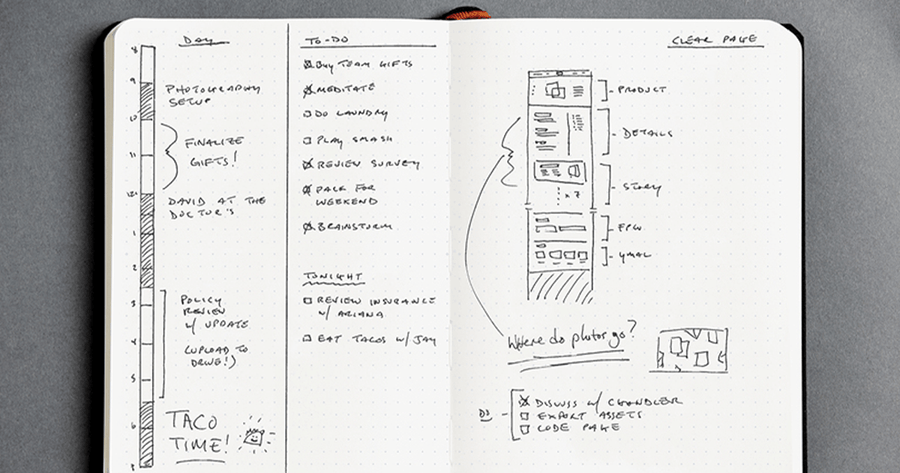 DAY
8
9
PHOTOGRAPHY
SETUP
10
FINALIZE
GIFTS!
11
12
DAVID AT THE
DOCTOR'S
1
2
3
POLICY
REVIEW
W/ UPDATE
(UPLOAD TO
DRIVE!)
4
5
6
TACO
TIME!
TO-DO
BUY TEAM GIFTS
MEDITATE
DO LAUNDRY
PLAY SMASH
REVIEW SURVEY
PACK FOR
WEEKEND
BRAINSTORM
TONIGHT
REVIEW INSURANCE
W/ ARIANA
EAT TACOS W/ JAY
CLEAR PAGE
PRODUCT
DETAILS
STORY
x 7
FPW
YMAL
Where do photos go?
DO
DISCUSS W/ CHANDLER
EXPORT ASSETS
CODE PAGE